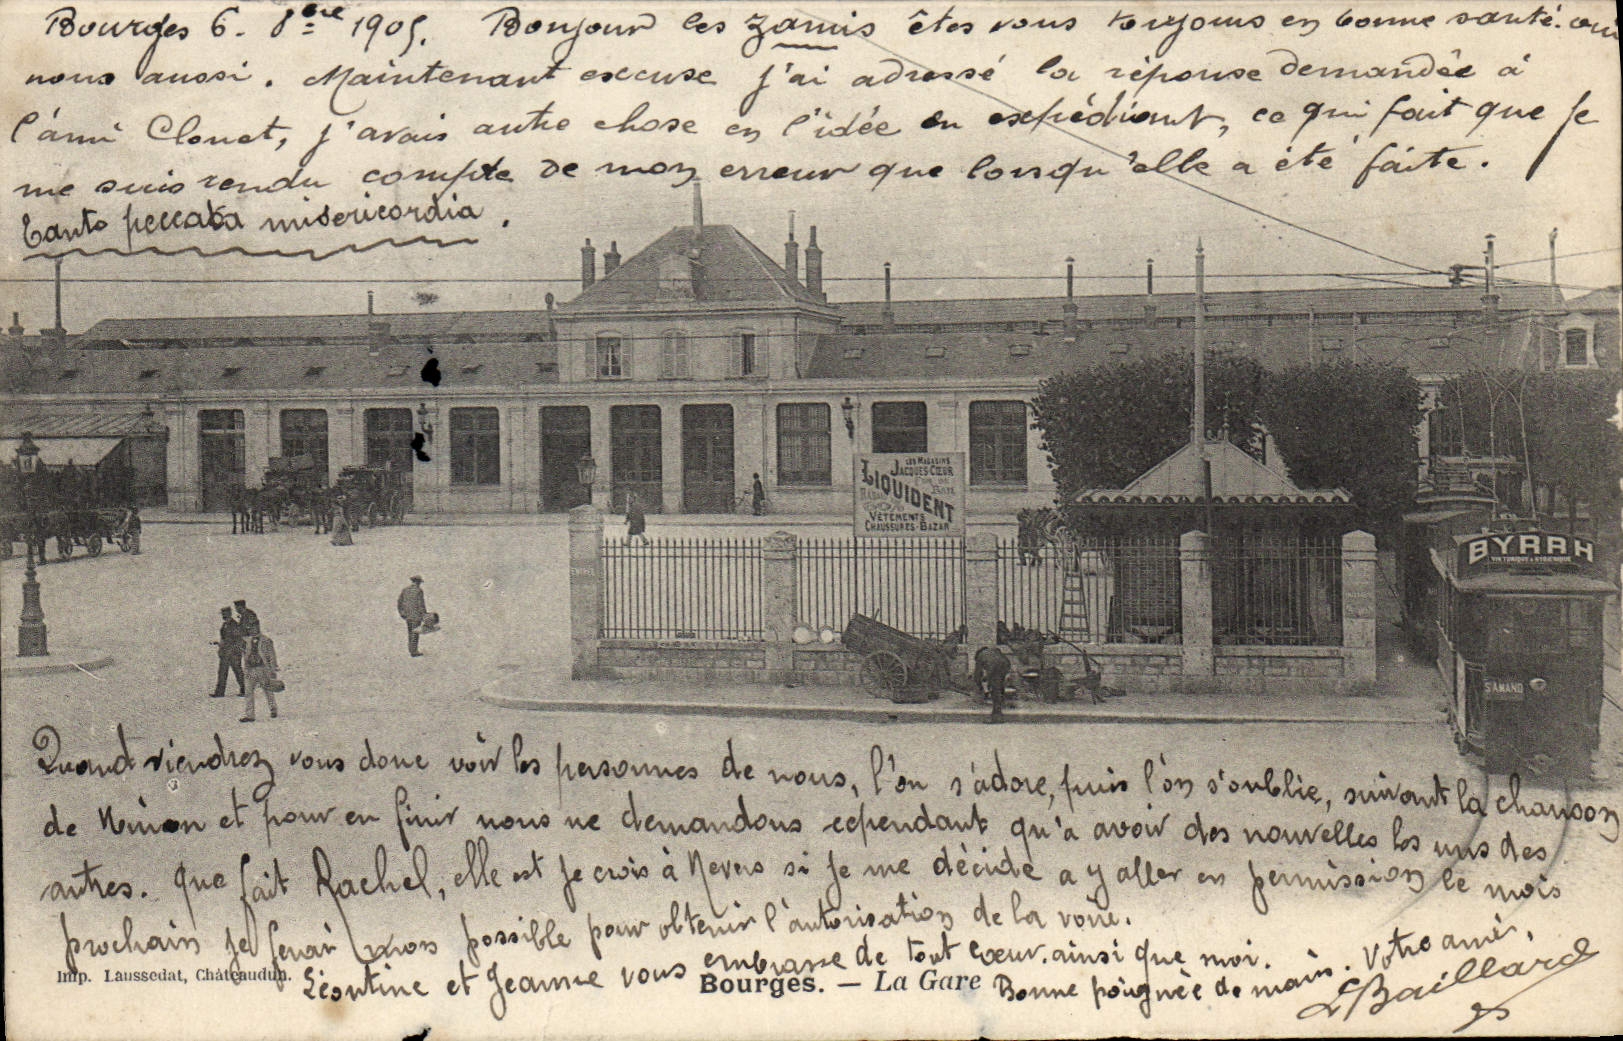 Bourges 6. 8bre 1905. Bonjour les zamis êtes vous toujours en bonne santé. oui
nous aussi. Maintenant excuse j'ai adressé la réponse demandée à
l'ami Clouet, j'avais autre chose en l'idée en expédiant, ce qui fait que je
me suis rendu compte de mon erreur que lorsqu'elle a été faite.
Tanto peccata misericordia.
LES MAGASINS
JACQUES CŒUR
LIQUIDENT
VÊTEMENTS
CHAUSSURES-BAZAR
BYRRH
St AMAND
Quand viendrez vous donc voir les personnes de nous, l'on s'adore, puis l'on s'oublie, suivant la chanson
de Ninon et pour en finir nous ne demandons cependant qu'à avoir des nouvelles les uns des
autres. Que fait Rachel, elle est je crois à Nevers si je me décide a y aller en permission le mois
prochain je ferai mon possible pour obtenir l'autorisation de la voir.
Léontine et Jeanne vous embrasse de tout cœur. ainsi que moi.
Bonne poignée de main. Votre ami,
LBaillard
Imp. Laussedat, Châteaudun.
Bourges. — La Gare